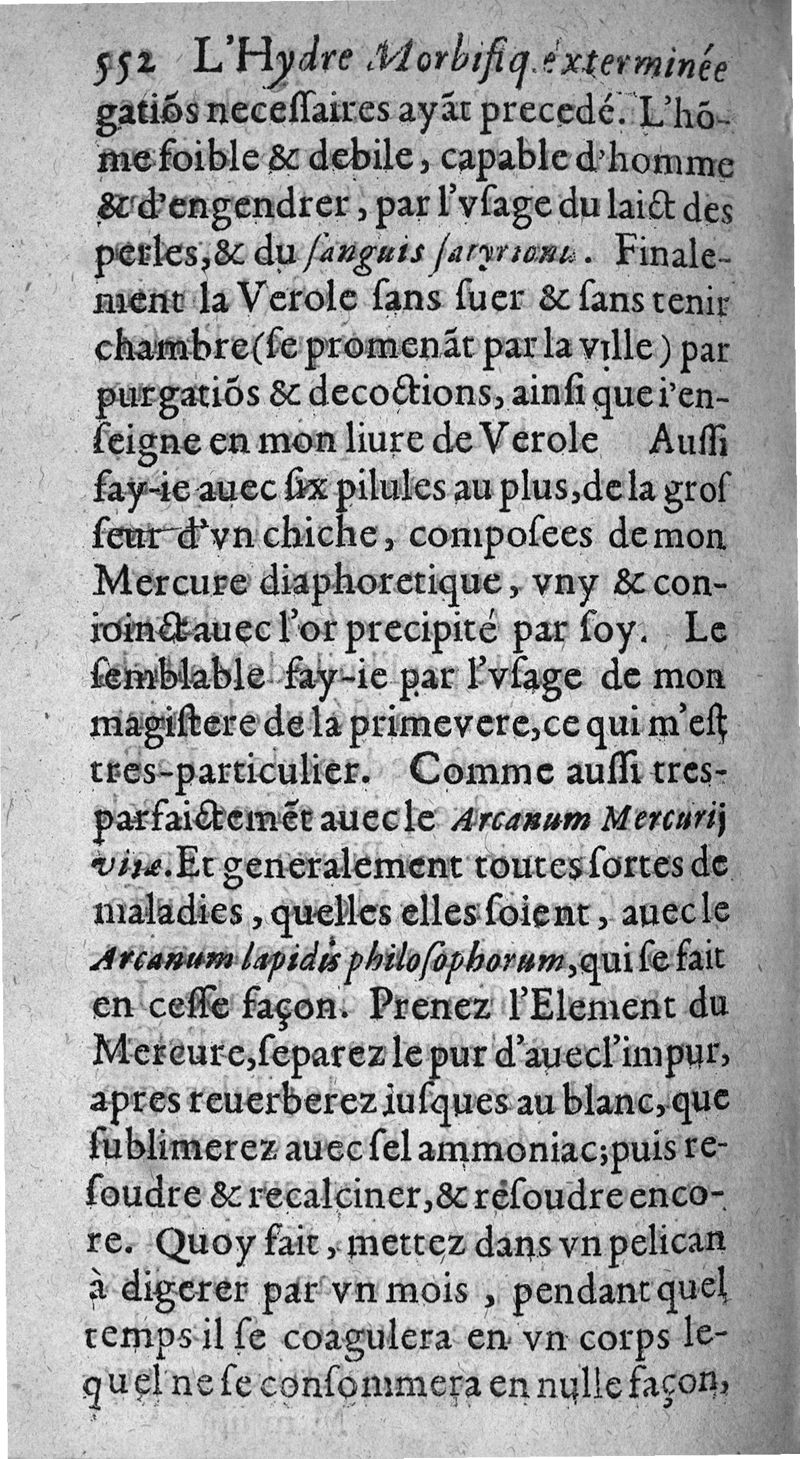 552 L'Hydre Morbifiq. exterminée
gatiõs neceſſaires ayãt precedé. L'hõ-
me foible & debile, capable d'homme
& d'engendrer, par l'vſage du laict des
perles, & du ſanguis ſatyrionis. Finale-
ment la Verole ſans ſuer & ſans tenir
chambre (ſe promenãt par la ville) par
purgatiõs & decoctions, ainſi que i'en-
ſeigne en mon liure de Verole Auſſi
fay-ie auec ſix pilules au plus, de la groſ
ſeur d'vn chiche, compoſees de mon
Mercure diaphoretique, vny & con-
ioinct auec l'or precipité par ſoy. Le
ſemblable fay-ie par l'vſage de mon
magiſtere de la primevere, ce qui m'eſt
tres-particulier. Comme auſſi tres-
parfaictemẽt auec le Arcanum Mercurij
vitæ. Et generalement toutes ſortes de
maladies, quelles elles ſoient, auec le
Arcanum lapidis philoſophorum, qui ſe fait
en ceſſe façon. Prenez l'Element du
Mercure, ſeparez le pur d'auec l'impur,
apres reuerberez iuſques au blanc, que
ſublimerez auec ſel ammoniac; puis re-
ſoudre & recalciner, & reſoudre enco-
re. Quoy fait, mettez dans vn pelican
à digerer par vn mois, pendant quel
temps il ſe coagulera en vn corps le-
quel ne ſe conſommera en nulle façon,